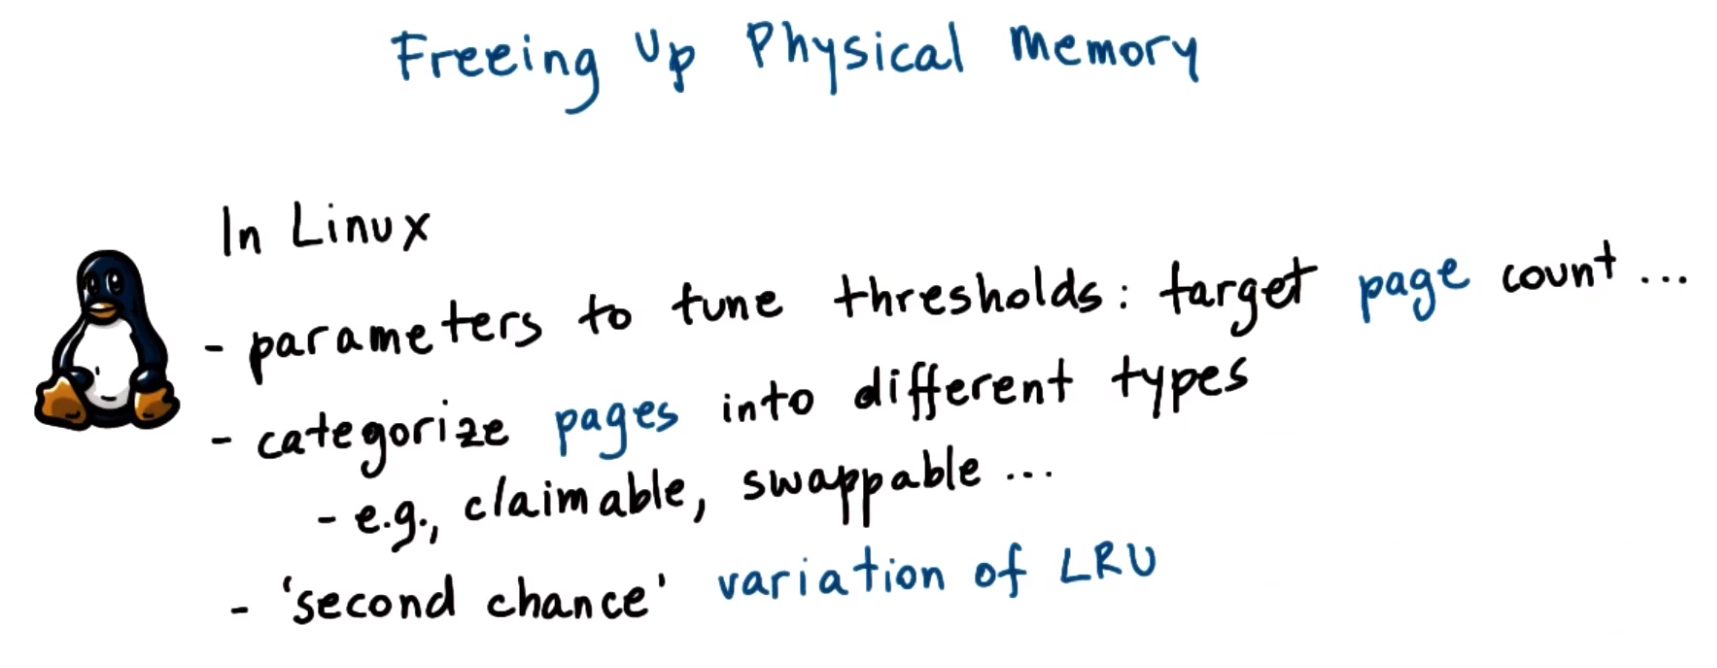 Freeing Up Physical Memory
In Linux
- parameters to tune thresholds: target page count ...
- categorize pages into different types
- e.g., claimable, swappable ...
- 'second chance' variation of LRU